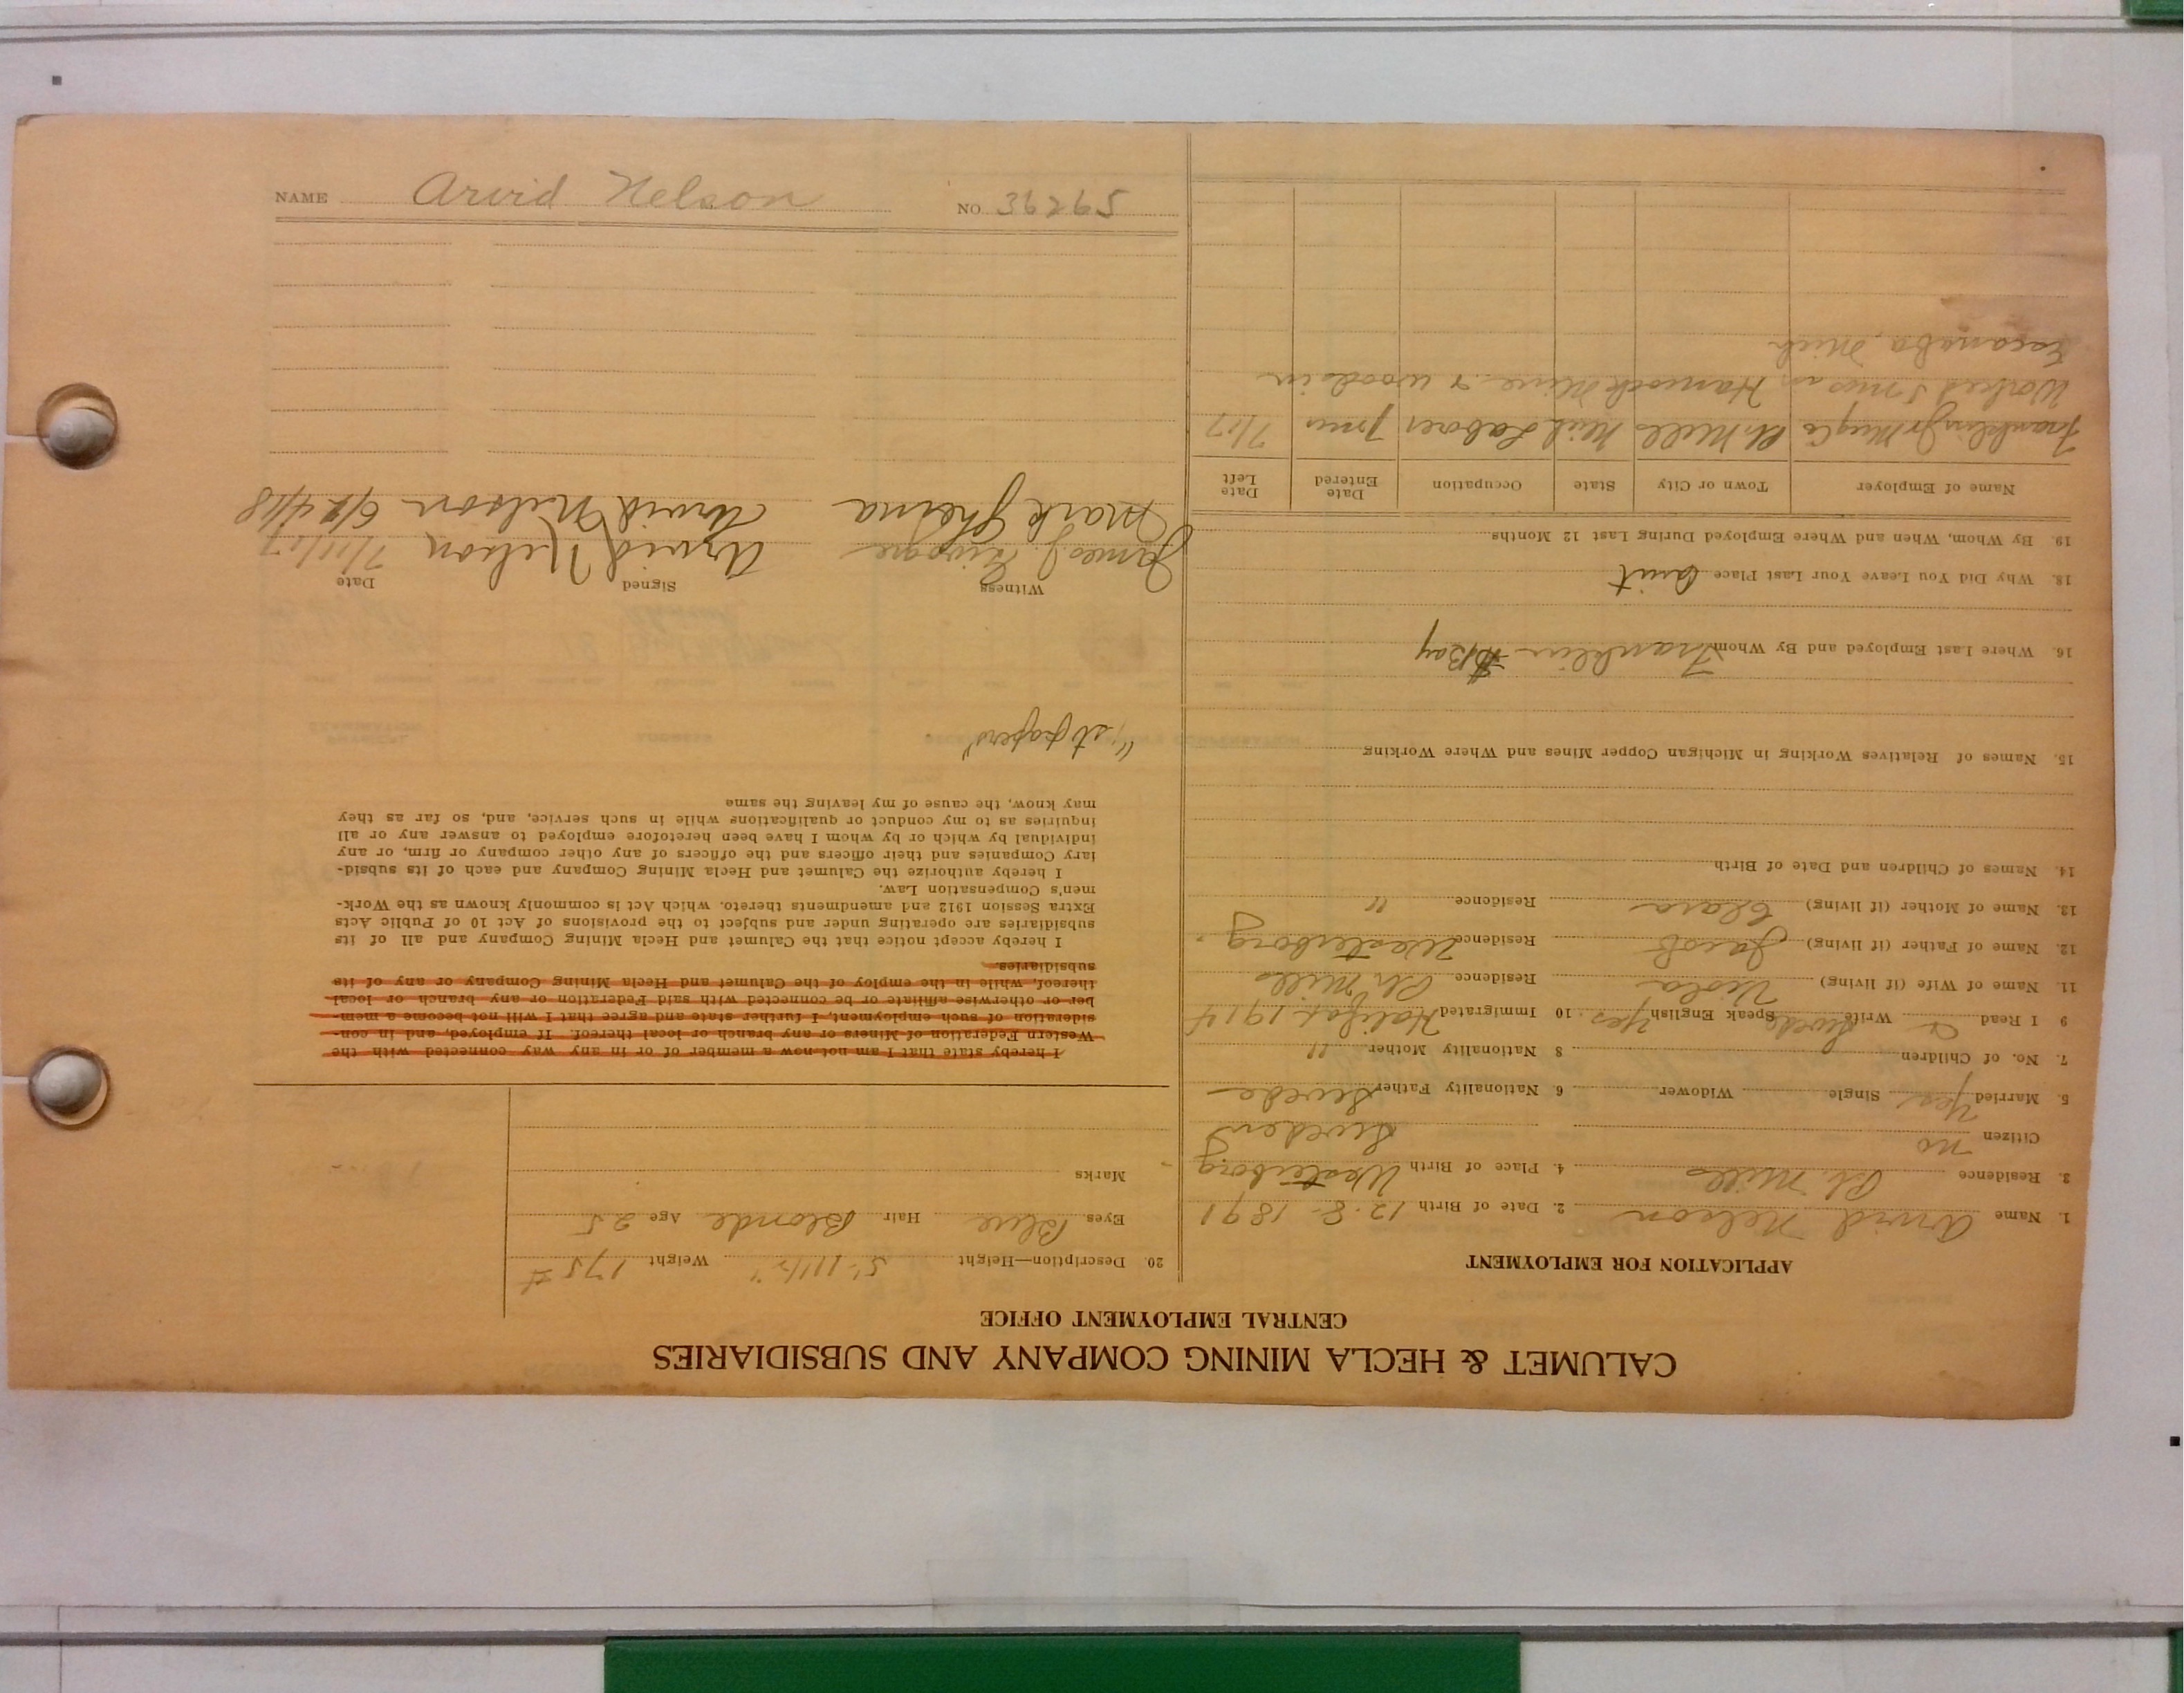 CALUMET & HECLA MINING COMPANY AND SUBSIDIARIES
CENTRAL EMPLOYMENT OFFICE
APPLICATION FOR EMPLOYMENT
1. Name Arvid Nelson 2. Date of Birth 12-8-1891
3. Residence Pt. Mills 4. Place of Birth Westerborg
Citizen no Sweden
5. Married Yes Single Widower 6. Nationality Father Swede
7. No. of Children 8 Nationality Mother "
9 I Read & Write Swede Speak English Yes 10 Immigrated Halifax 1914
11. Name of Wife (if living) Viola Residence Pt. Mills
12. Name of Father (if living) Jacob Residence Westerborg
13. Name of Mother (if living) Clara Residence "
14. Names of Children and Date of Birth
15. Names of Relatives Working in Michigan Copper Mines and Where Working
16. Where Last Employed and By Whom Franklin Bay
18. Why Did You Leave Your Last Place Quit
19. By Whom, When and Where Employed During Last 12 Months
Name of Employer Town or City State Occupation Date Entered Date Left
Franklin Jr Mng Co Pt Mills Mich Laborer 7 mos 7/17
Worked 5 mos in Hancock Mine & woods in
Escanaba, Mich
20. Description—Height 5'-11 1/2" Weight 175 #
Eyes Blue Hair Blonde Age 25
Marks
I hereby state that I am not now a member of or in any way connected with the
Western Federation of Miners or any branch or local thereof. If employed, and in con-
sideration of such employment, I further state and agree that I will not become a mem-
ber or otherwise affiliate or be connected with said Federation or any branch or local
thereof, while in the employ of the Calumet and Hecla Mining Company or any of its
subsidiaries.
I hereby accept notice that the Calumet and Hecla Mining Company and all of its
subsidiaries are operating under and subject to the provisions of Act 10 of Public Acts
Extra Session 1912 and amendments thereto. which Act is commonly known as the Work-
men's Compensation Law.
I hereby authorize the Calumet and Hecla Mining Company and each of its subsid-
iary Companies and their officers and the officers of any other company or firm, or any
individual by which or by whom I have been heretofore employed to answer any or all
inquiries as to my conduct or qualifications while in such service, and, so far as they
may know, the cause of my leaving the same
"1st papers"
Witness Signed Date
James J. Arvid Nelson 7/11/17
Mark Arvid Nelson 6/24/18
NAME Arvid Nelson NO. 36265